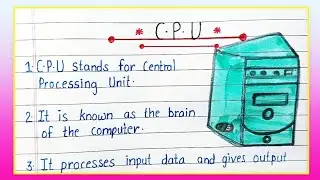 * C.P.U *
1. C.P.U stands for Central
Processing Unit.
2. It is known as the brain
of the computer.
3. It processes input data and gives output